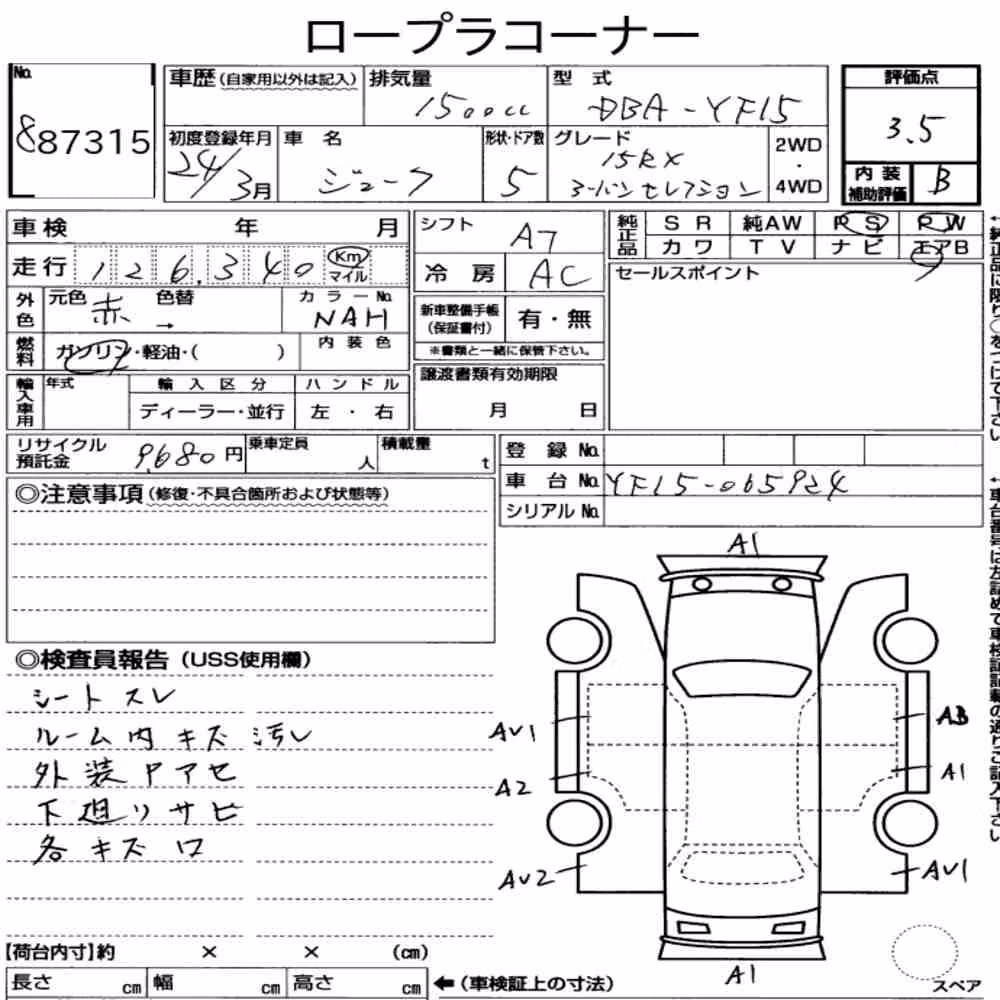 ロープラコーナー
No.
887315
車歴(自家用以外は記入)
排気量
1500cc
型式
DBA-YF15
評価点
3.5
初度登録年月
24/3月
車名
ジューク
形状・ドア数
5
グレード
15RX
2WD
・
4WD
内装
補助評価
B
車検 年 月
シフト
A7
純正品
SR 純AW PS PW
カワ TV ナビ エアB
走行
126,340
Km
マイル
冷房
AC
セールスポイント
外色
元色 赤 色替 →
カラーNo.
NAH
新車整備手帳
(保証書付)
有・無
※書類と一緒に保管下さい。
燃料
ガソリン・軽油・( )
内装色
譲渡書類有効期限
月 日
輸入車用
年式
輸入区分
ハンドル
ディーラー・並行
左・右
リサイクル
預託金
9,680円
乗車定員
人
積載量
t
登録No.
車台No.
YF15-065924
シリアルNo.
◎注意事項(修復・不具合箇所および状態等)
A1
◎検査員報告(USS使用欄)
シートスレ
ルーム内キズ汚レ
外装Pアセ
下廻リサビ
各キズ口
AV1
A2
AV2
A3
A1
AV1
A1
スペア
【荷台内寸】約 × × (cm)
長さ cm 幅 cm 高さ cm
←(車検証上の寸法)
←純正品に限り○をつけて下さい
←車台番号は左詰めで車検証記載の通りご記入下さい